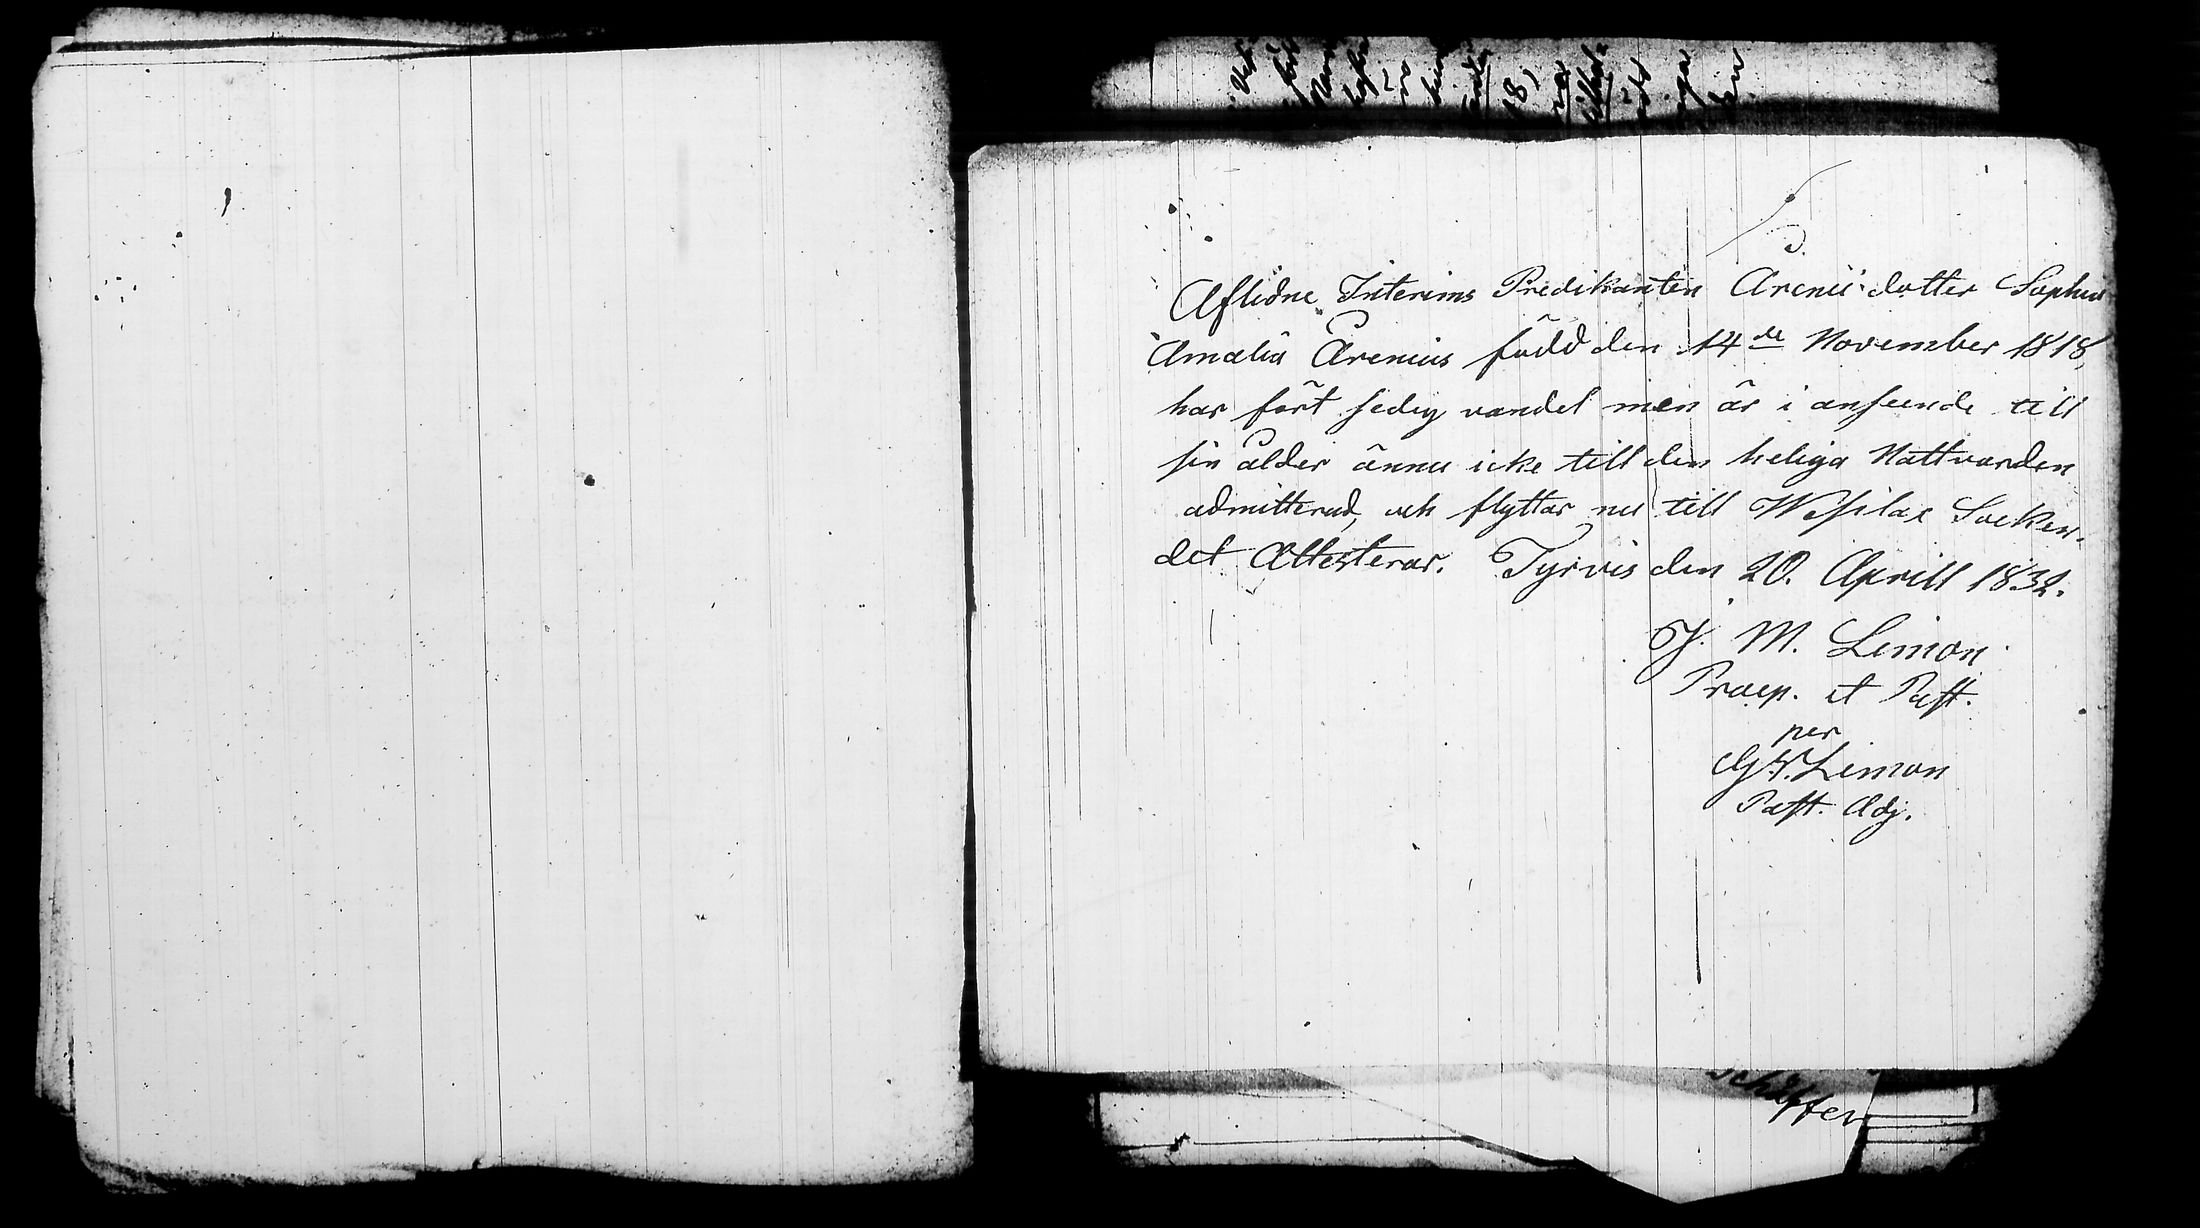 Aflidne Interims Predikanten Arenii dotter Sophia
Amalia Arenius född den 14de November 1818,
har fört sedig vandel men är i anseende till
sin ålder ännu icke till den heliga Nattvarden
admitterad, och flyttar nu till Wesilax Socken.
det Attesterar. Tyrvis den 20. Aprill 1832.
J. M. Limon
Praep. et Past.
per
G W. Limon
Past. Adj.